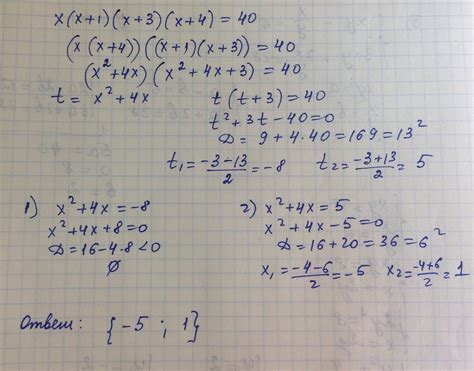 x(x+1)(x+3)(x+4)=40
(x(x+4))((x+1)(x+3))=40
(x²+4x)(x²+4x+3)=40
t= x²+4x t(t+3)=40
t²+3t-40=0
D= 9+4·40=169=13²
t₁= (-3-13)/2 = -8 t₂= (-3+13)/2 = 5
1) x²+4x=-8
x²+4x+8=0
D=16-4·8<0
∅
2) x²+4x=5
x²+4x-5=0
D=16+20=36=6²
x₁= (-4-6)/2 = -5 x₂= (-4+6)/2 = 1
Ответ: {-5 ; 1}